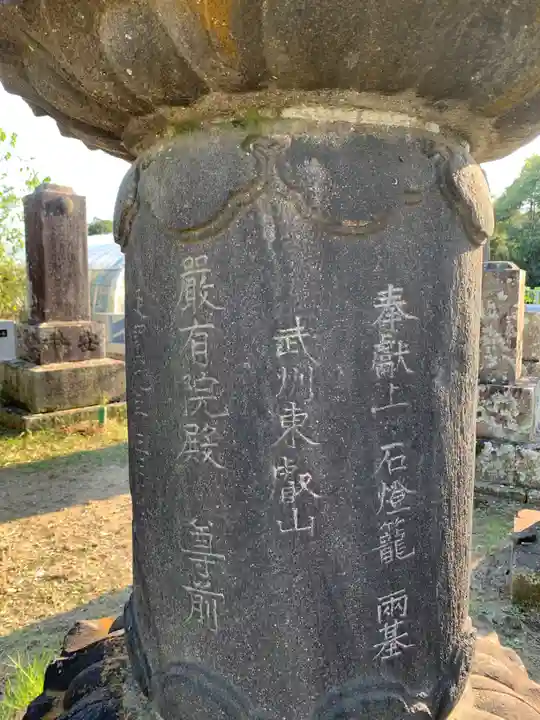 奉獻上 石燈籠 兩基
武州東叡山
嚴有院殿 尊前